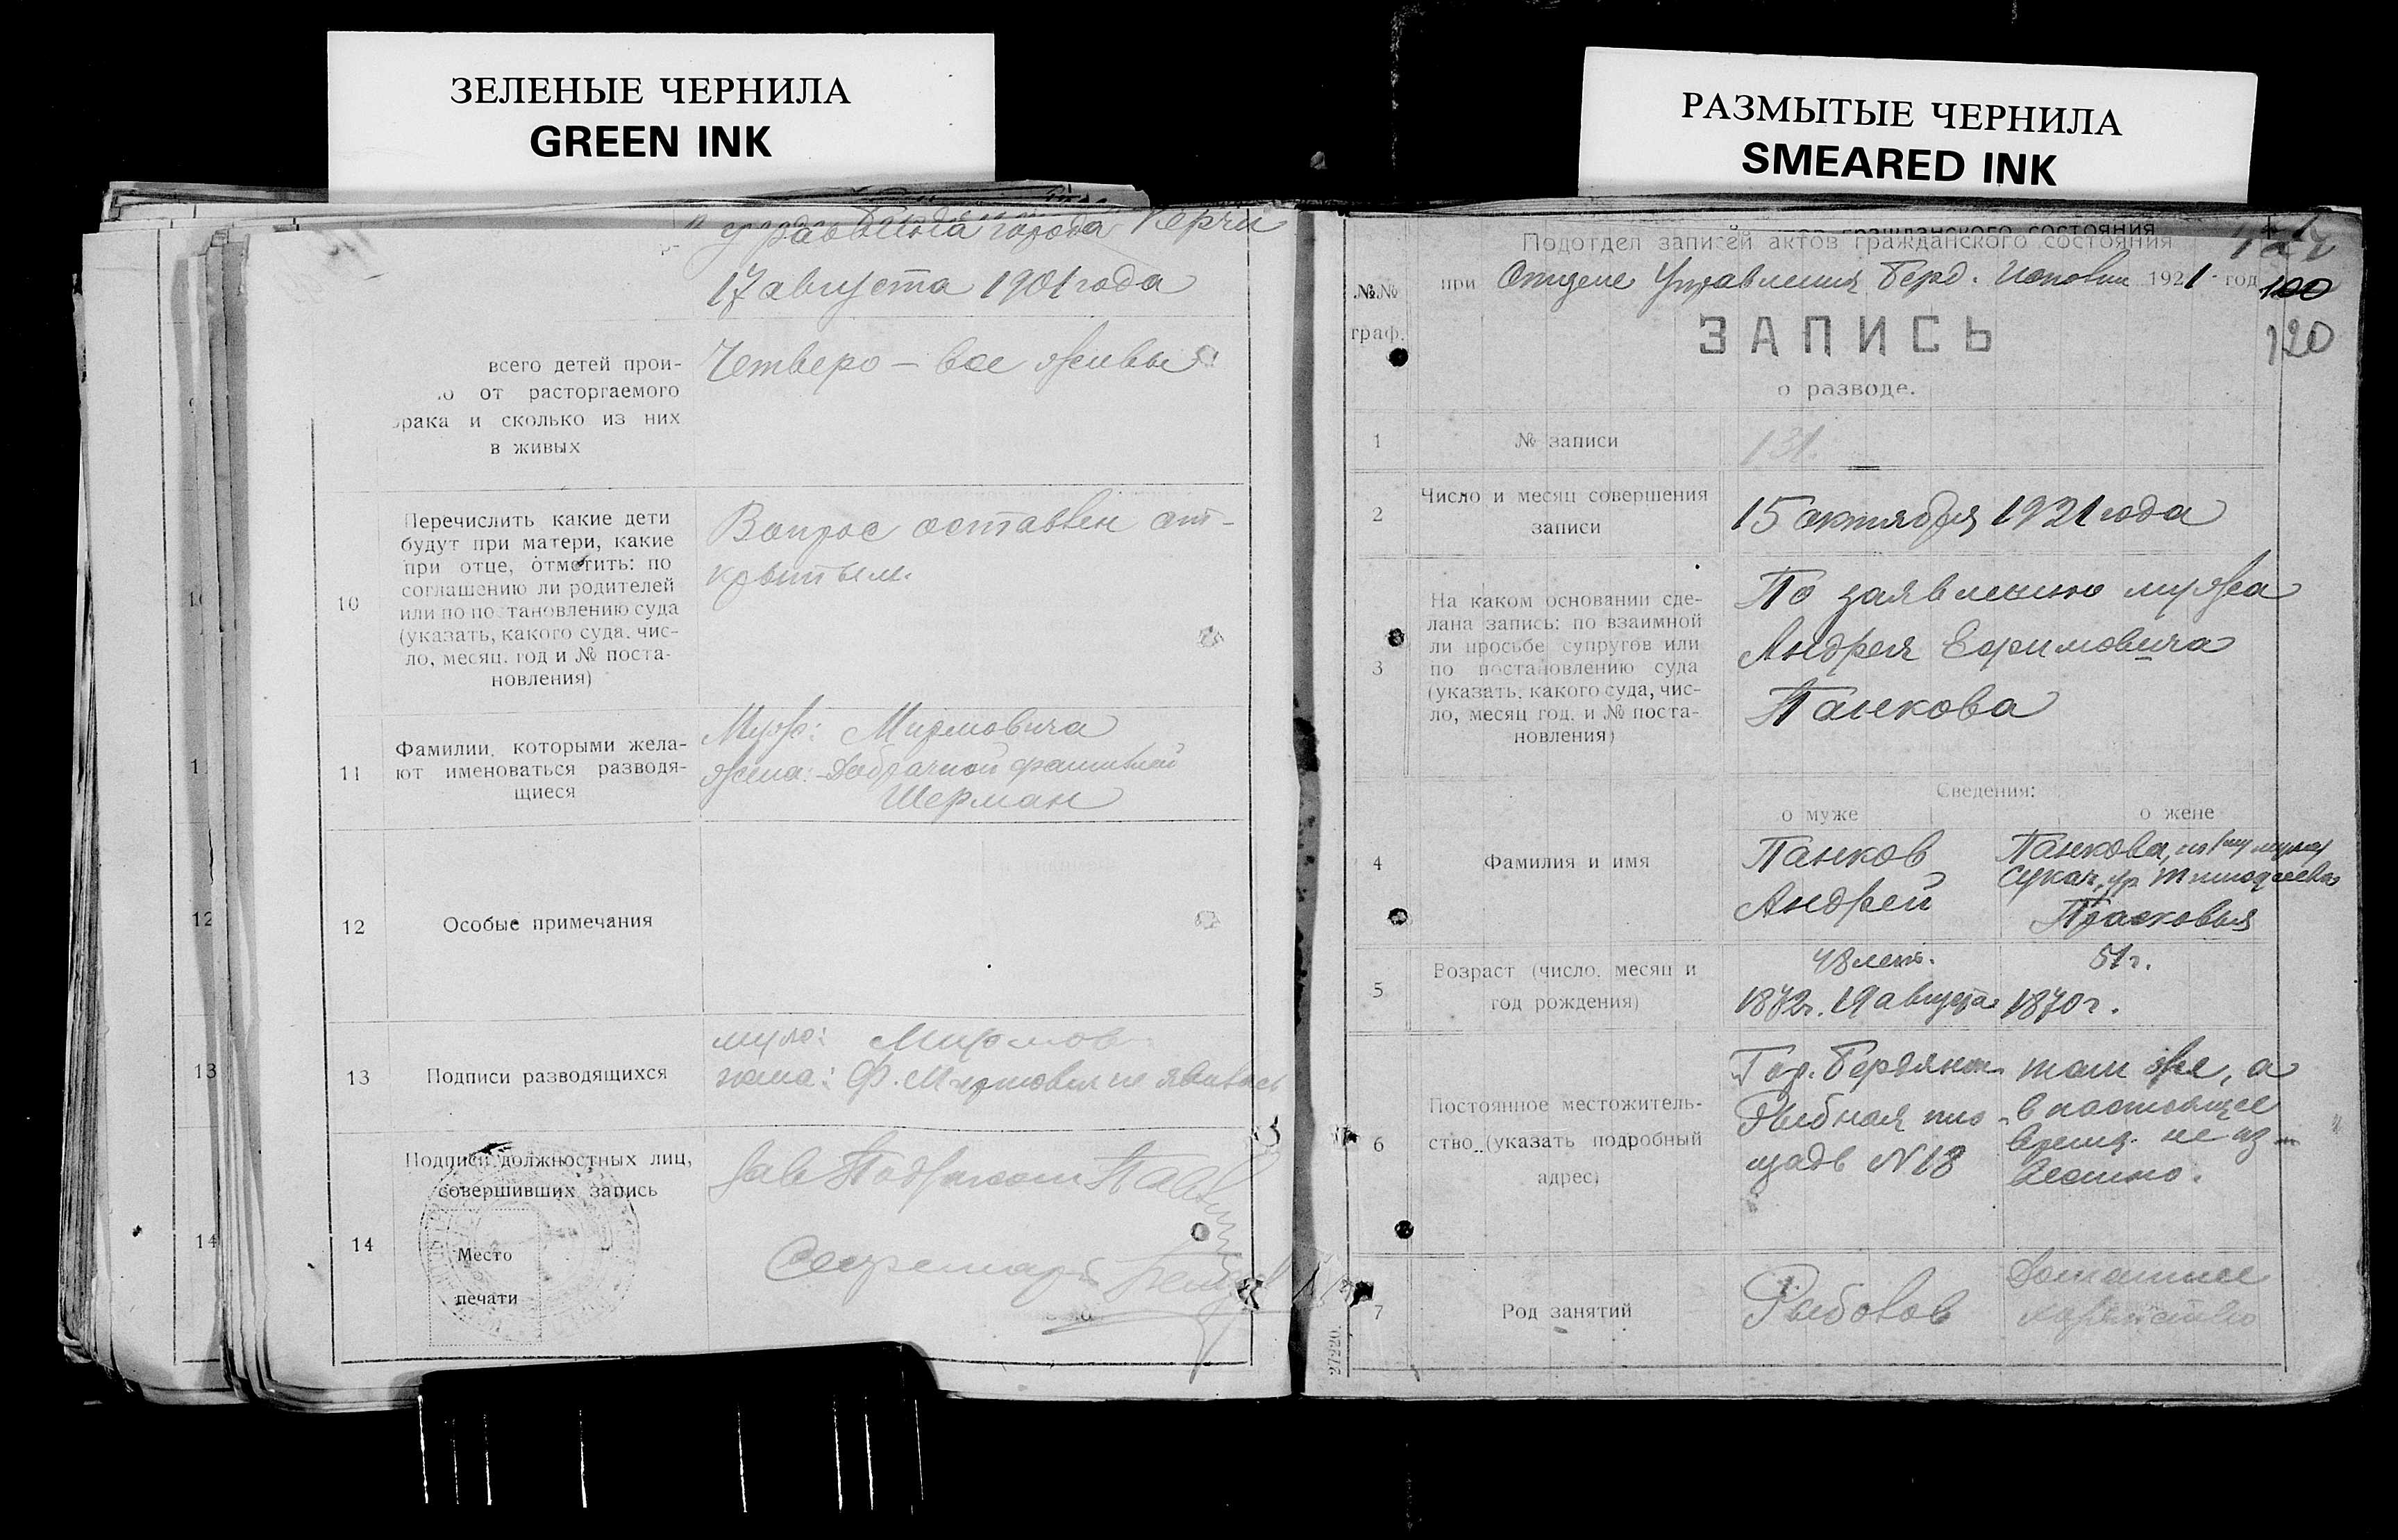 ЗЕЛЕНЫЕ ЧЕРНИЛА
GREEN INK
РАЗМЫТЫЕ ЧЕРНИЛА
SMEARED INK
города Керчи
17 августа 1901 года
всего детей прои-
от расторгаемого
брака и сколько из них
в живых
Четверо — все живы
10
Перечислить какие дети
будут при матери, какие
при отце, отметить: по
соглашению ли родителей
или по постановлению суда
(указать, какого суда, чис-
ло, месяц, год и № поста-
новления)
Вопрос оставлен от-
крытым.
11
Фамилии, которыми жела-
ют именоваться разводя-
щиеся
Муж:
жена: Добрачной фамилией
Шерман
12
Особые примечания
13
Подписи разводящихся
муж:
жена: Ф. не явилась
14
Подписи должностных лиц,
совершивших запись
Место
печати
Зав
Секретарь
10
11
12
13
14
Подотдел записей актов гражданского состояния
при Отделе Управления Берд. Исполк 1921 год
100
120
№№
граф.
ЗАПИСЬ
о разводе.
1
№ записи
131.
2
Число и месяц совершения
записи
15 октября 1921 года
3
На каком основании сде-
лана запись: по взаимной
ли просьбе супругов или
по постановлению суда
(указать, какого суда, чис-
ло, месяц год, и № поста-
новления)
По заявлению мужа
Андрея Ефимовича
Панкова
Сведения:
о муже
о жене
4
Фамилия и имя
Панков
Андрей
Панкова, по 1му мужу
Прасковья
5
Возраст (число, месяц и
год рождения)
48 лет.
1872г. 19 августа
51 г.
1870 г.
6
Постоянное местожитель-
ство (указать подробный
адрес)
Гор. Бердянск
Рыбная пло-
щадь N 18
там же, а
в настоящее
время не из-
вестно.
7
Род занятий
Рыболов
Домашнее
хозяйство
27220.